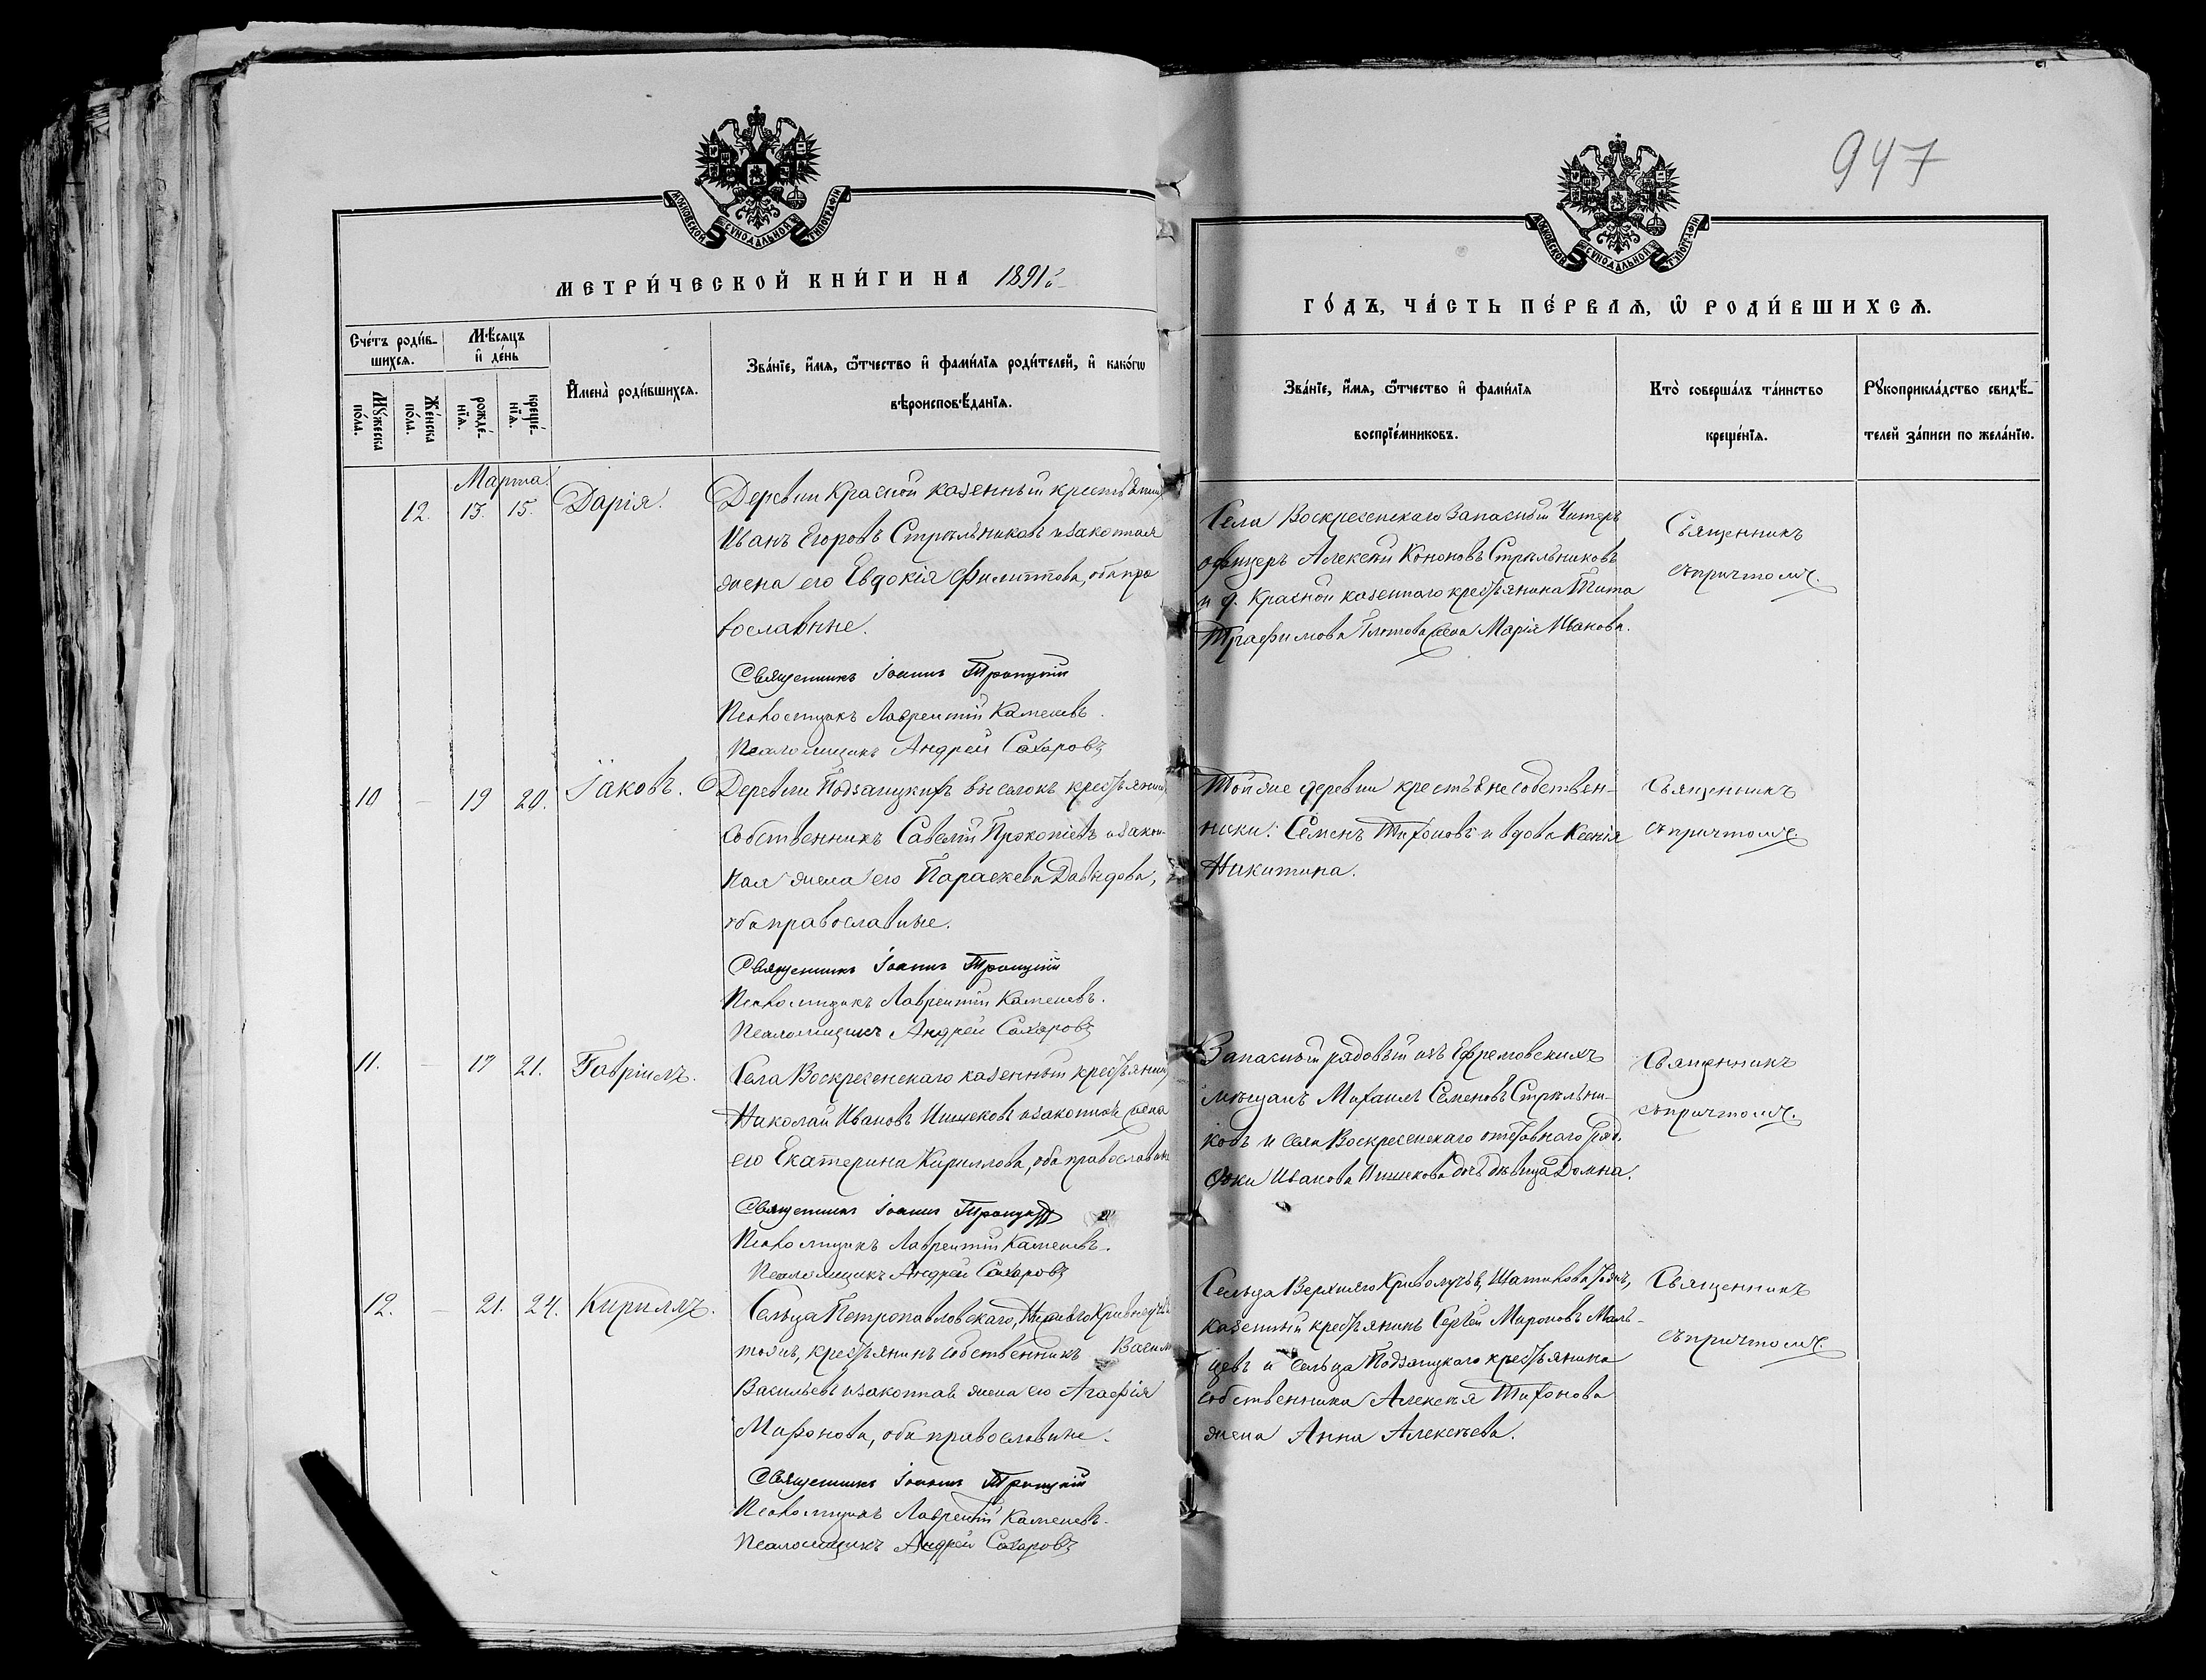 947
МОСКОВСКОЙ СУНОДАЛЬНОЙ ТИПОГРАФІИ
МОСКОВСКОЙ СУНОДАЛЬНОЙ ТИПОГРАФІИ
МЕТРИ́ЧЕСКОЙ КНИ́ГИ НА 1891й
ГО́ДЪ, ЧА́СТЬ ПЕ́РВАѦ, Ѡ҆ РОДИ́ВШИХСѦ.
Сче́тъ роди́в-
шихсѧ.
Мѣ́сѧцъ
и҆ де́нь
Му́жеска
по́ла.
Же́нска
по́ла.
рожде́-
нїѧ.
креще́-
нїѧ.
И҆мена̀ роди́вшихсѧ.
Зва́нїе, и҆́мѧ, ѻ҆́тчество и҆ фами́лїѧ роди́телей, и҆ како́гѡ
вѣроисповѣ́данїѧ.
Зва́нїе, и҆́мѧ, ѻ҆́тчество и҆ фами́лїѧ
воспрїе́мниковъ.
Кто̀ соверша́лъ та́инство
креще́нїѧ.
Рꙋкоприкла́дство свидѣ́-
телей за́писи по жела́нїю.
Марта
12. 13. 15. Дарія.
Деревни Красной казенный крестьянинъ
Иванъ Егоровъ Стрѣльниковъ и законная
жена его Евдокія Филиппова, оба пра
вославные.
Священникъ Іоаннъ Троицкій
Псаломщикъ Лаврентій Каменевъ.
Псаломщикъ Андрей Сахаровъ
Села Воскресенскаго запасный Унтеръ
офицеръ Алексѣй Кононовъ Стрѣльниковъ
и д. Красной казеннаго крестьянина Тита
Трафимова жена Марія Иванова.
Священникъ
съ причтомъ.
10 – 19 20. Іаковъ.
Деревни Подзацкихъ выселокъ крестьянинъ
собственникъ Савелій Прокопіевъ и закон-
ная жена его Параскева Давыдова,
оба православные.
Священникъ Іоаннъ Троицкій
Псаломщикъ Лаврентій Каменевъ.
Псаломщикъ Андрей Сахаровъ
Той же деревни крестьяне собствен-
ники: Семенъ Тихоновъ и вдова Ксенія
Никитина.
Священникъ
съ причтомъ.
11. – 17 21. Гавріилъ.
Села Воскресенскаго казенный крестьянинъ
Николай Ивановъ и законная жена
его Екатерина Кириллова, оба православные
Священникъ Іоаннъ Троицкій
Псаломщикъ Лаврентій Каменевъ.
Псаломщикъ Андрей Сахаровъ
Запасный рядовый изъ Ефремовскихъ
мѣщанъ Михаилъ Семеновъ Стрѣльни-
ковъ и села Воскресенскаго ряд.
Фоки Иванова дочь дѣвица Домна.
Священникъ
съ причтомъ.
12. – 21. 24. Кириллъ.
Сельца Петропавловскаго,
тожъ, крестьянинъ собственникъ
Васильевъ и законная жена его Агафія
оба православные.
Священникъ Іоаннъ Троицкій
Псаломщикъ Лаврентій Каменевъ.
Псаломщикъ Андрей Сахаровъ
Сельца Верхняго тожъ,
казенный крестьянинъ Сергѣй Мироновъ Маль-
цевъ и сельца Подзацкаго крестьянина
собственника Алексѣя Тихонова
жена Анна Алексѣева.
Священникъ
съ причтомъ.